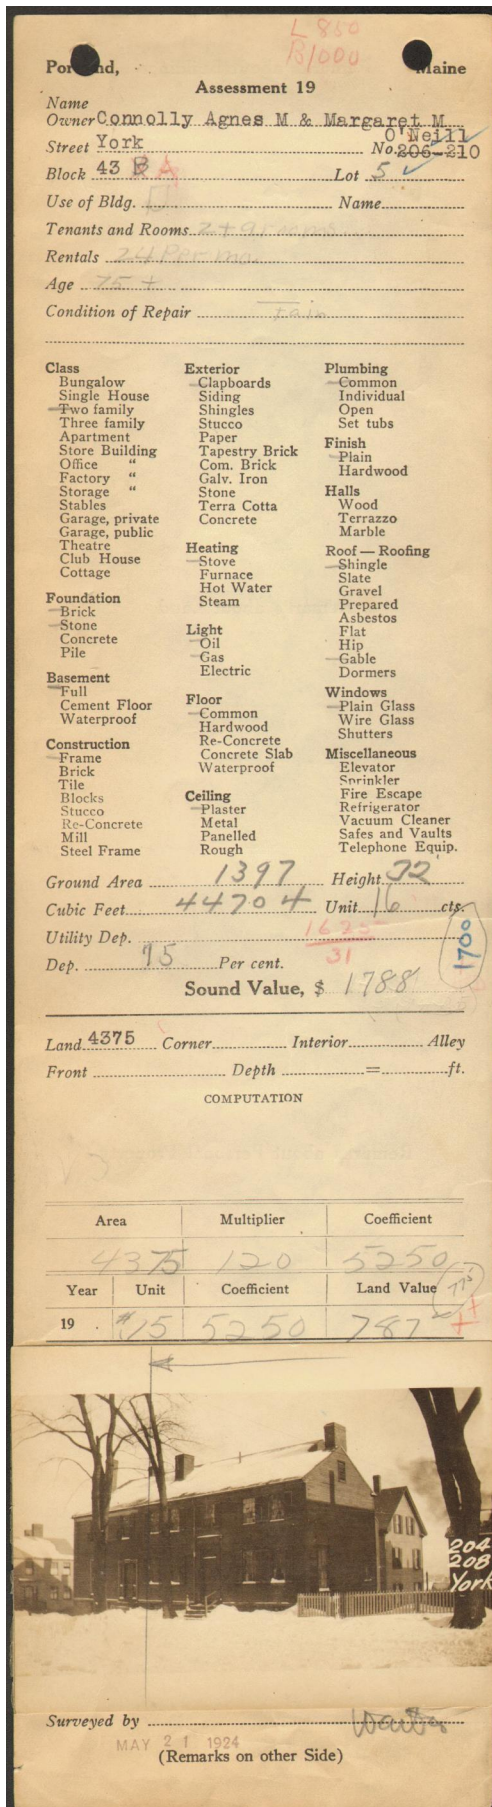 L 850
B 1000
Portland, Maine
Assessment 19
Name
Owner Connolly Agnes M & Margaret M
O'Neill
Street York No. 206-210
Block 43 B A Lot 5
Use of Bldg. Name
Tenants and Rooms 2 + 9 rooms
Rentals 24 Per mo.
Age 75 +
Condition of Repair Fair
Class
Bungalow
Single House
Two family
Three family
Apartment
Store Building
Office "
Factory "
Storage "
Stables
Garage, private
Garage, public
Theatre
Club House
Cottage
Foundation
Brick
Stone
Concrete
Pile
Basement
Full
Cement Floor
Waterproof
Construction
Frame
Brick
Tile
Blocks
Stucco
Re-Concrete
Mill
Steel Frame
Exterior
Clapboards
Siding
Shingles
Stucco
Paper
Tapestry Brick
Com. Brick
Galv. Iron
Stone
Terra Cotta
Concrete
Heating
Stove
Furnace
Hot Water
Steam
Light
Oil
Gas
Electric
Floor
Common
Hardwood
Re-Concrete
Concrete Slab
Waterproof
Ceiling
Plaster
Metal
Panelled
Rough
Plumbing
Common
Individual
Open
Set tubs
Finish
Plain
Hardwood
Halls
Wood
Terrazzo
Marble
Roof — Roofing
Shingle
Slate
Gravel
Prepared
Asbestos
Flat
Hip
Gable
Dormers
Windows
Plain Glass
Wire Glass
Shutters
Miscellaneous
Elevator
Sprinkler
Fire Escape
Refrigerator
Vacuum Cleaner
Safes and Vaults
Telephone Equip.
Ground Area 1397 Height 32
Cubic Feet 44704 Unit 16 cts.
Utility Dep. 1625
31
1700
Dep. 75 Per cent.
Sound Value, $ 1788
Land 4375 Corner Interior Alley
Front Depth = ft.
COMPUTATION
Area Multiplier Coefficient
4375 120 5250
Year Unit Coefficient Land Value 775
19 $15 5250 787
204
208
York
Surveyed by
MAY 21 1924
(Remarks on other Side)